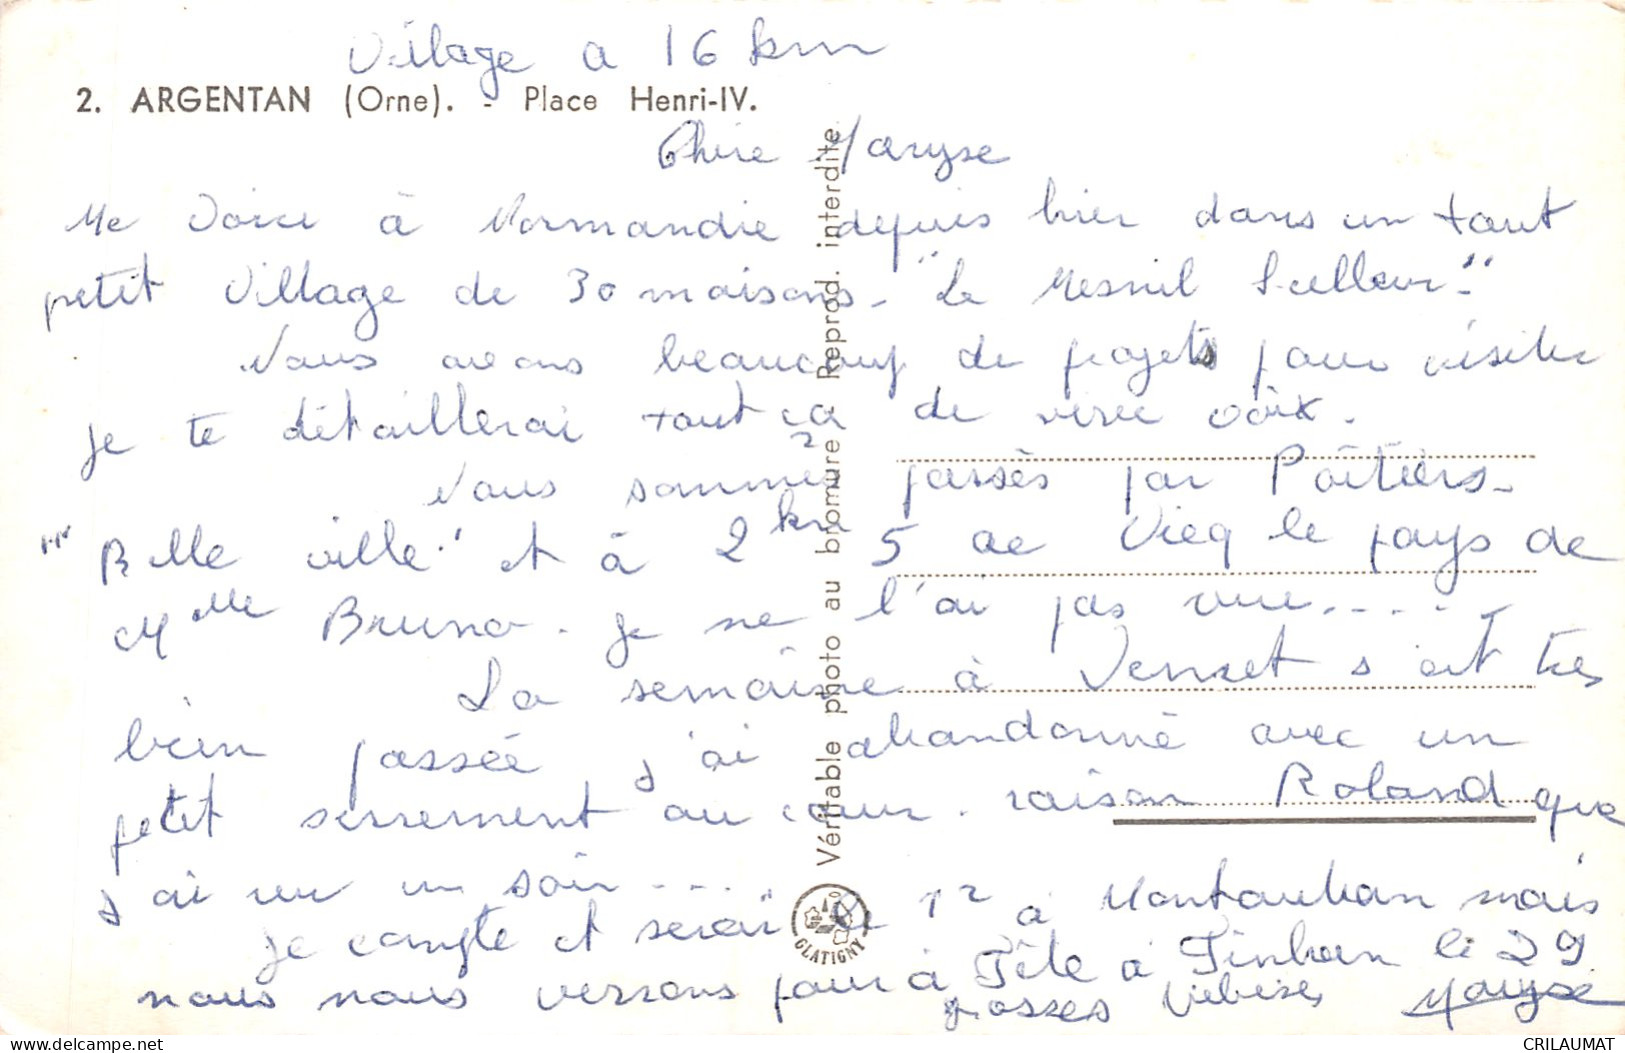 Village a 16 km
2. ARGENTAN (Orne). - Place Henri-IV.
Chère Maryse
Me voici à Normandie depuis hier dans un tout
petit village de 30 maisons - "Le Mesnil
Nous avons beaucoup de projets pour visiter
je te détaillerai tout ça de vive voix.
Nous sommes passés par Poitiers -
"Belle ville" et à 2 km 5 de Vicq le pays de
Melle Bruno. je ne l'ai pas vue....
La semaine à s'est très
bien passée j'ai abandonné avec un
petit serrement au cœur. raison Roland que
j'ai vu un soir ....
je compte et serai le 12 à Montauban mais
nous nous verrons pour à Fête à Finhan le 29
grosses bises Maryse
Véritable photo au bromure - Reprod. interdite
GLATIGNY
CRILAUMAT